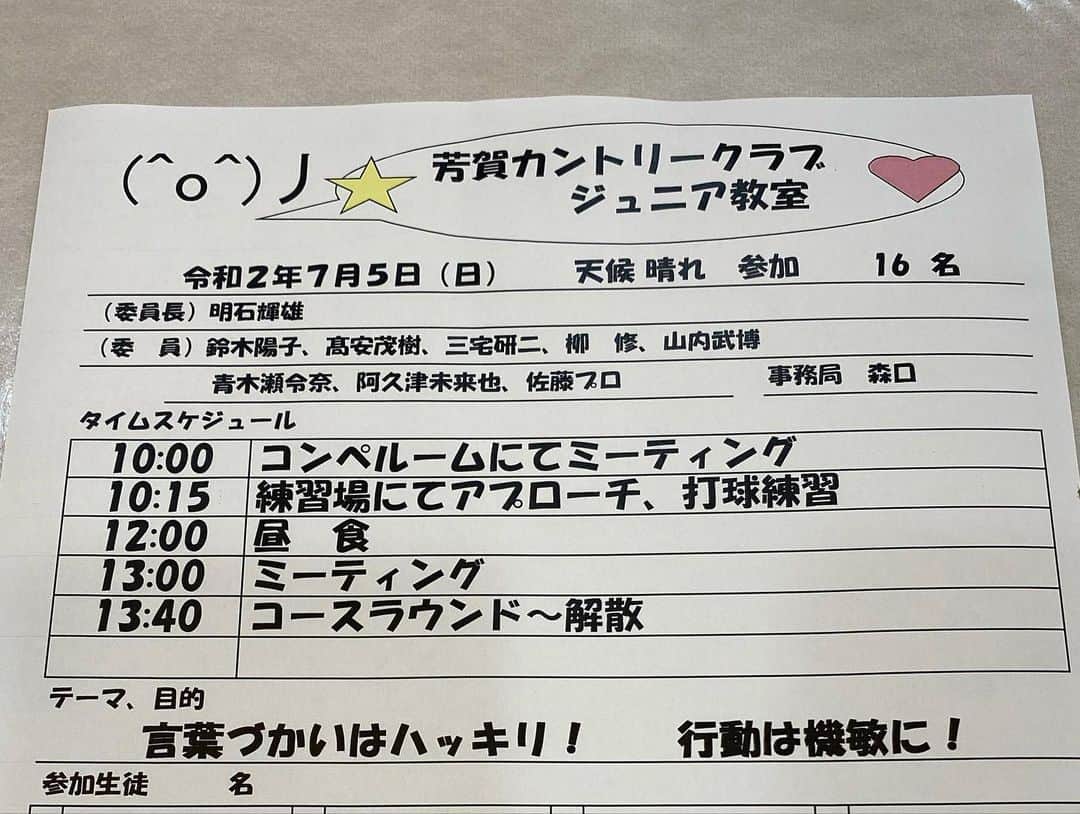 (^o^)丿 芳賀カントリークラブ
ジュニア教室
令和2年7月5日(日) 天候 晴れ 参加 16 名
(委員長)明石輝雄
(委 員)鈴木陽子、髙安茂樹、三宅研二、柳 修、山内武博
青木瀬令奈、阿久津未来也、佐藤プロ 事務局 森口
タイムスケジュール
10:00 コンペルームにてミーティング
10:15 練習場にてアプローチ、打球練習
12:00 昼 食
13:00 ミーティング
13:40 コースラウンド～解散
テーマ、目的
言葉づかいはハッキリ! 行動は機敏に!
参加生徒 名